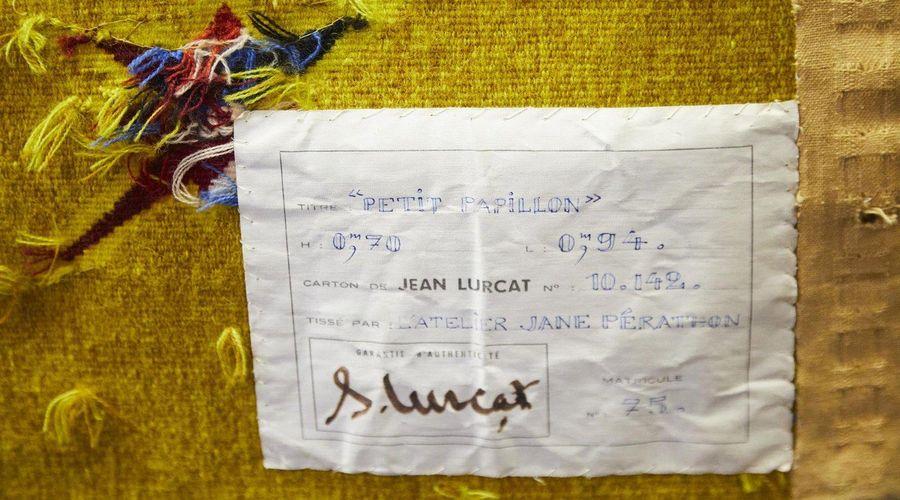 TITRE : "PETIT PAPILLON"
H : 0m,70 L : 0m,94.
CARTON DE JEAN LURCAT N° : 10.142.
TISSÉ PAR : L'ATELIER JANE PÉRATHON
GARANTIE d'AUTHENTICITÉ
S. Lurçat
MATRICULE
N° : 75.